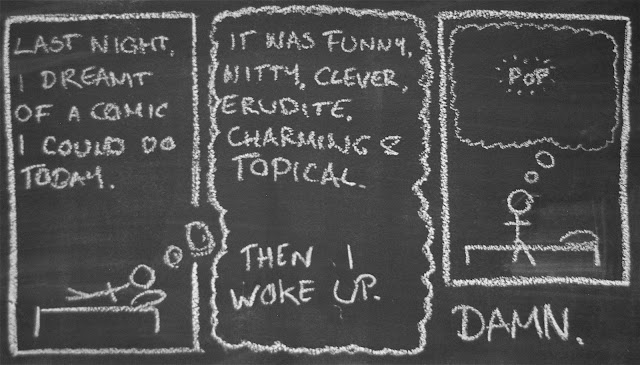 LAST NIGHT,
I DREAMT
OF A COMIC
I COULD DO
TODAY.
IT WAS FUNNY,
WITTY, CLEVER,
ERUDITE,
CHARMING &
TOPICAL.
THEN I
WOKE UP.
POP
DAMN.